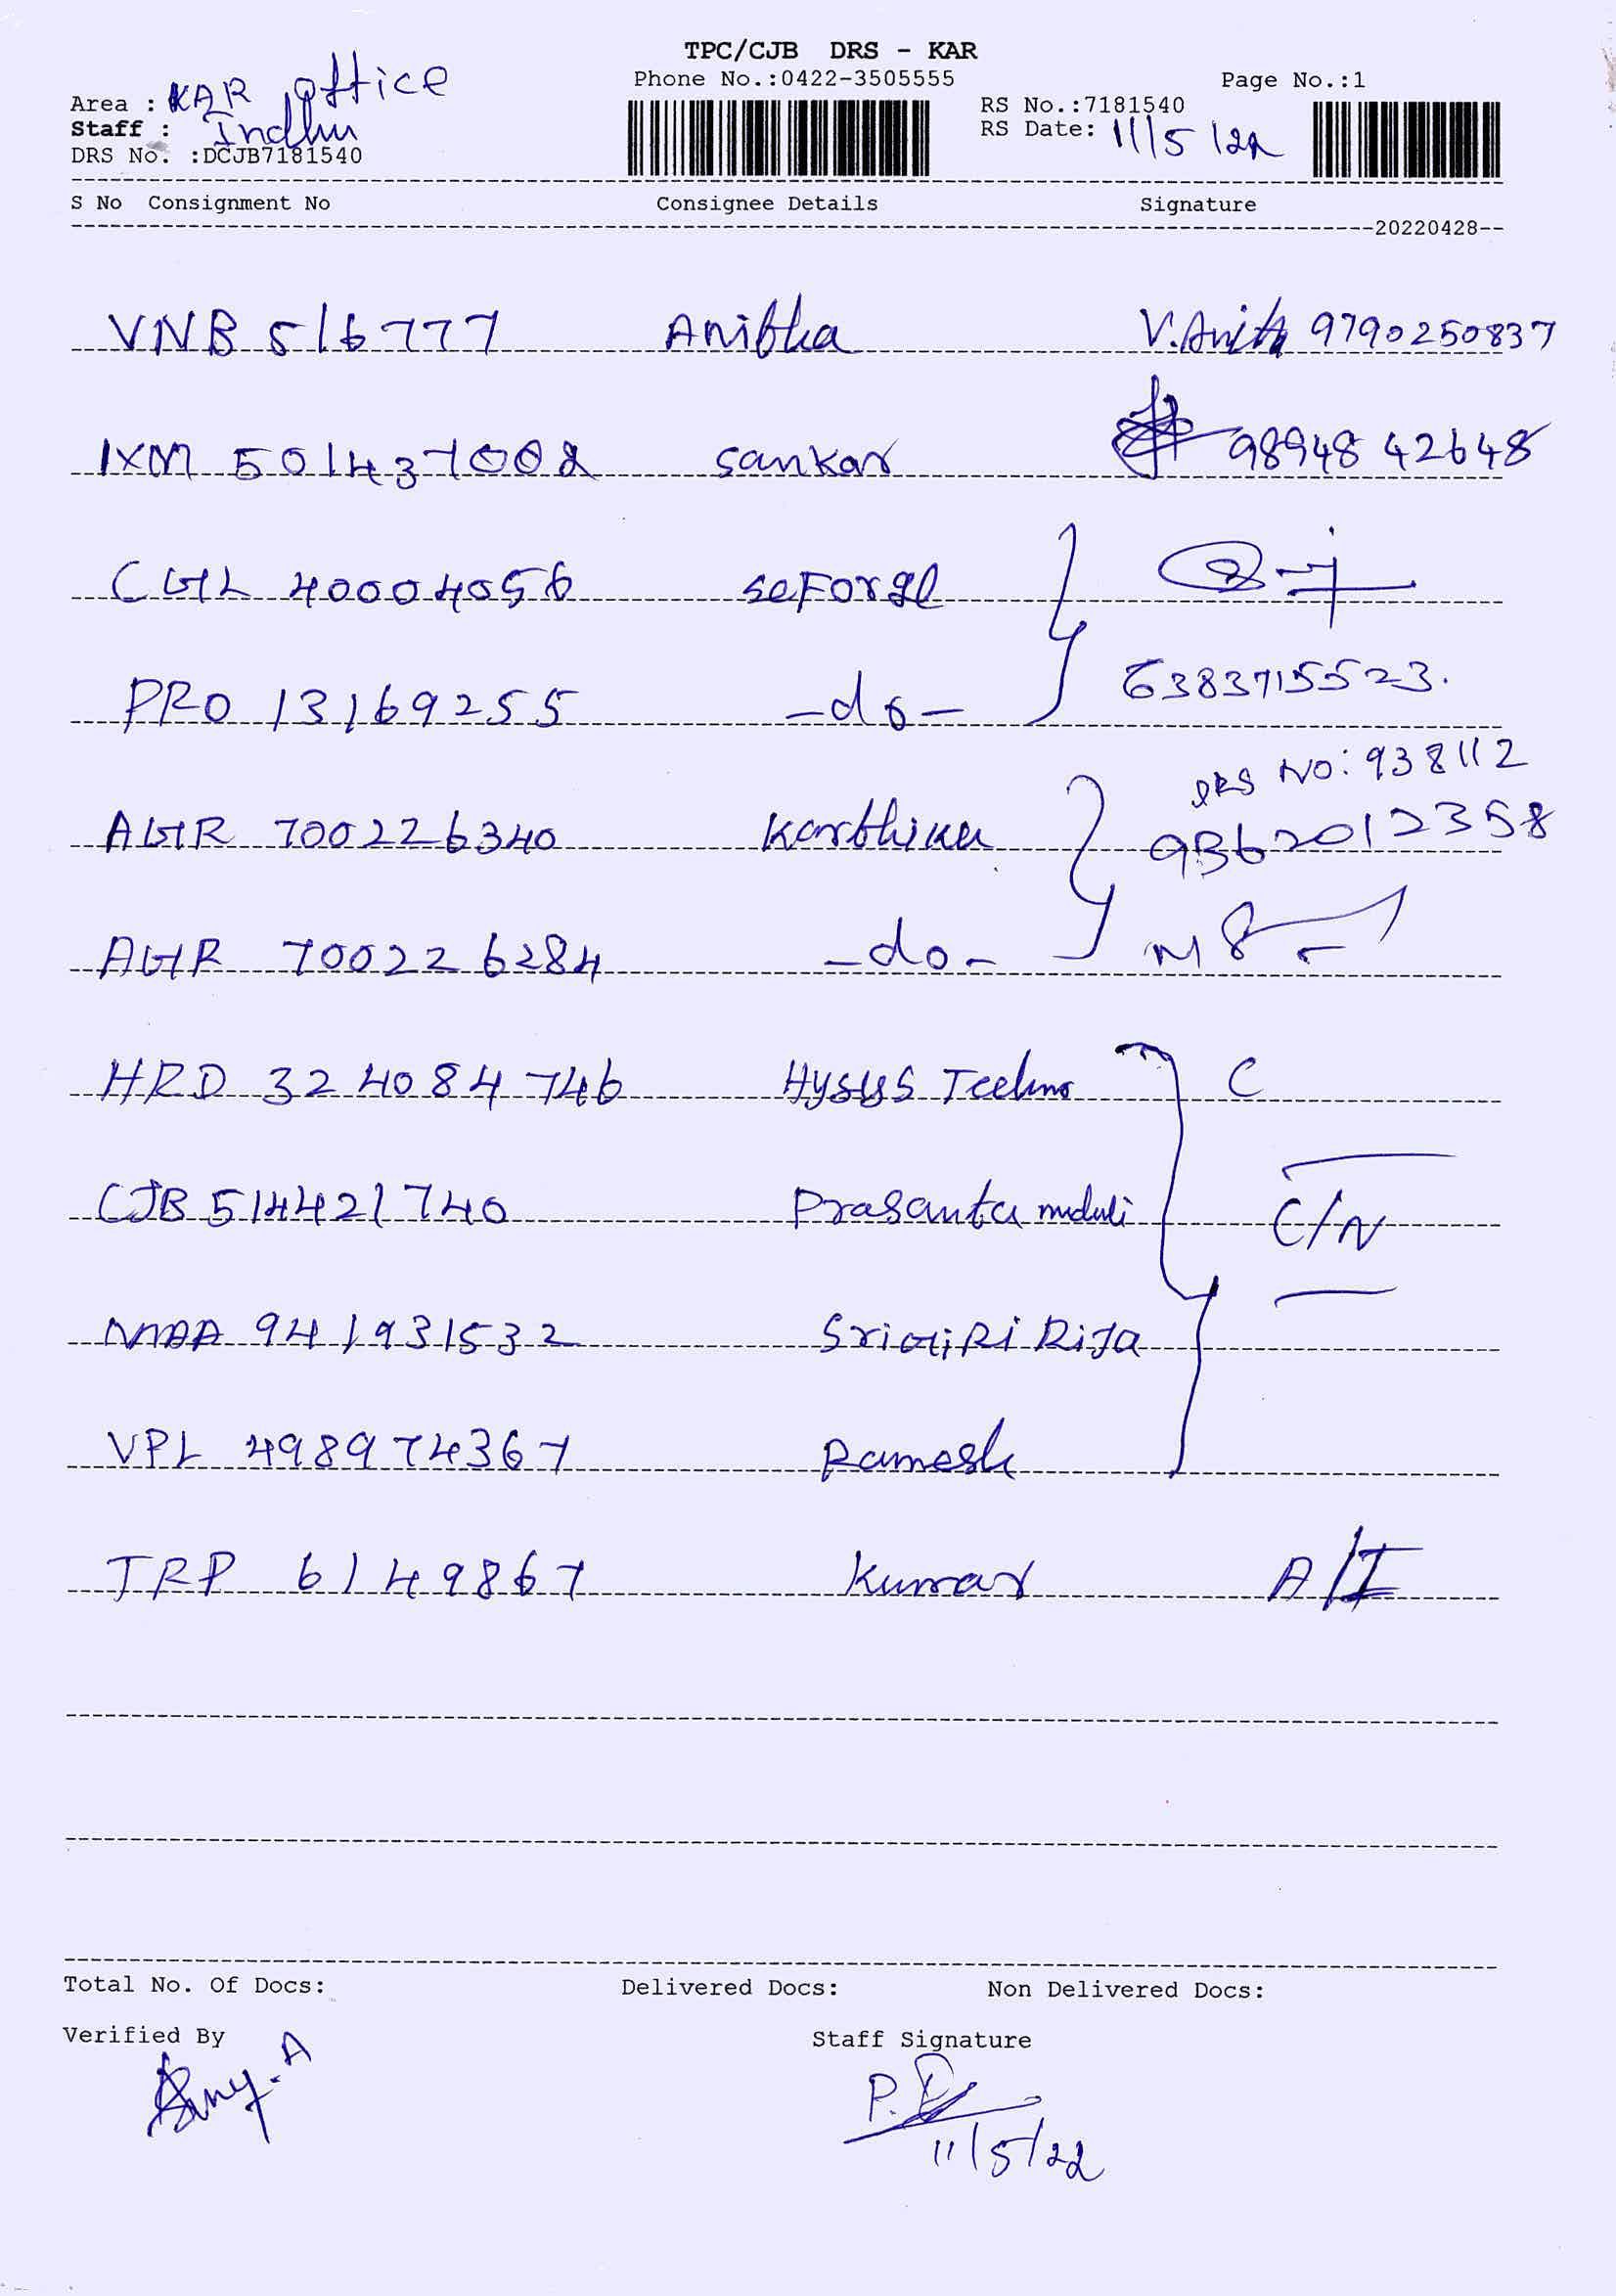 TPC/CJB DRS - KAR
Phone No.:0422-3505555
Page No.:1
Area : KAR office
RS No.:7181540
Staff : Indhu
RS Date: 11/5/22
DRS No. :DCJB7181540
S No Consignment No Consignee Details Signature
20220428
VNB 516777 Anitha V.Anitha 9790250837
IXM 501437002 sankar 98948 42648
CGL 40004056 seForge
PRO 13169255 -do- 6383715523.
DRS NO: 938112
AGR 700226340 Karthika 9362012358
AGR 700226284 -do-
HRD 324084746 Hysys Techno C
CJB 514421740 Prasanta muduli C/N
MAA 941931532 SriGiRi RiJa
VPL 498974367 Ramesh
TRP 6149867 Kumar A/I
Total No. Of Docs: Delivered Docs: Non Delivered Docs:
Verified By Staff Signature
11/5/22